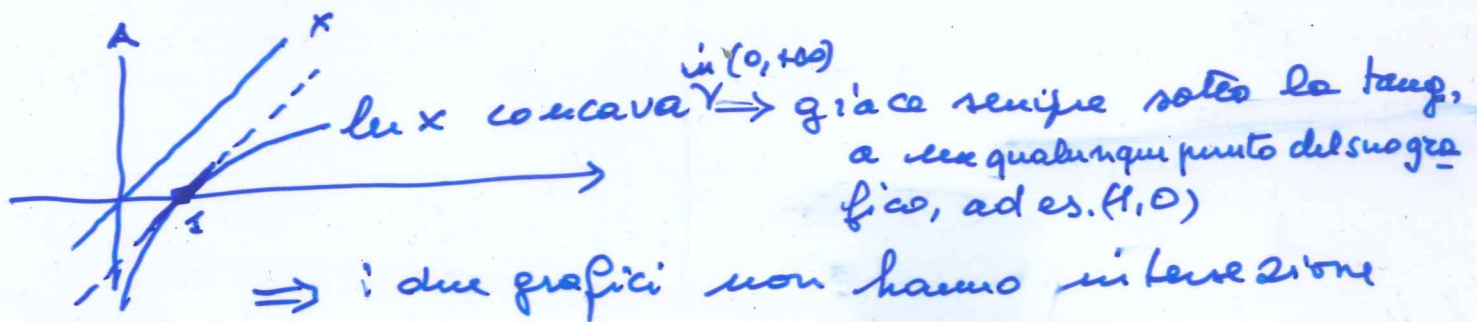 x
in (0, +∞)
ln x concava ⇒ giace sempre sotto la tang.
a un qualunque punto del suo gra
fico, ad es. (1,0)
1
⇒ i due grafici non hanno intersezione